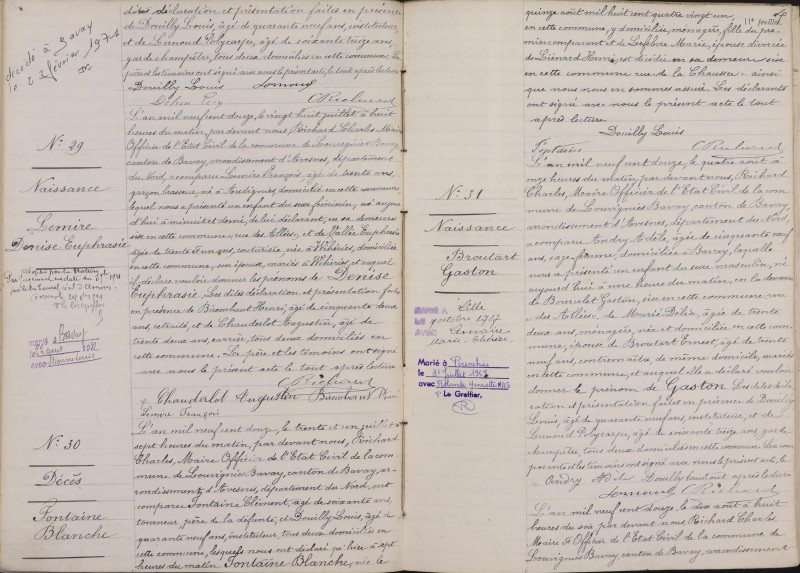 dites déclaration et présentation faites en présence
de Douilly Louis, âgé de quarante neuf ans, instituteur,
et de Lernoud Polycarpe, âgé de soixante treize ans,
garde champêtre, tous deux domiciliés en cette commune. Le
père et les témoins ont signé avec nous le présent acte, le tout après lecture
Douilly Louis Lernoud
CRichard
décédé à Bavay
le 23 février 1974
N° 29
Naissance
Lemire
Denise Euphrasie
L'an mil neuf cent douze, le vingt huit juillet à huit
heures du matin, par devant nous Richard Charles Maire
Officier de l'Etat Civil de la commune de Louvignies Bavay,
canton de Bavay, arrondissement d'Avesnes, département
du Nord, a comparu Lemire François, âgé de trente ans,
garçon brasseur, né à Audignies, domicilié en cette commune,
lequel nous a présenté un enfant du sexe féminin, né aujour
d'hui à minuit et demi, de lui déclarant, en sa demeure
sise en cette commune, rue des Alliés, et de Vallée Euphrasie
âgée de trente ans, couturière, née à Wihéries, domiciliée
en cette commune, son épouse, mariés à Wihéries, et auquel
il a déclaré vouloir donner les prénoms de Denise
Euphrasie. Les dites déclaration et présentation faites
en présence de Bisembaut Henri, âgé de cinquante deux
ans, retraité, et de Chauderlot Augustin, âgé de
trente deux ans, carrier, tous deux domiciliés en
cette commune. Le père et les témoins ont signé
avec nous le présent acte le tout après lecture
CRichard
Chauderlot Augustin
Lemire François
marié à Bavay
N° 30
Décès
Fontaine
Blanche
L'an mil neuf cent douze, le trente et un juillet à
sept heures du matin, par devant nous, Richard
Charles, Maire Officier de l'Etat Civil de la com-
mune de Louvignies Bavay, canton de Bavay, ar-
rondissement d'Avesnes, département du Nord, ont
comparu Fontaine Clément, âgé de soixante ans,
tourneur, père de la défunte, et Douilly Louis, âgé de
quarante neuf ans, instituteur, tous deux domiciliés en
cette commune, lesquels nous ont déclaré qu'hier à sept
heures du matin Fontaine Blanche, née le
11e feuillet
quinze août mil huit cent quatre vingt un,
en cette commune, y domiciliée, ménagère, fille du pre-
mier comparant et de Lefebvre Marie, épouse divorcée
de Liénard Henri, est décédée en sa demeure sise
en cette commune rue de la Chaussée, ainsi
que nous nous en sommes assuré. Les déclarants
ont signé avec nous le présent acte le tout
après lecture
Douilly Louis
Fontaine CRichard
N° 31
Naissance
Broutart
Gaston
L'an mil neuf cent douze, le quatre août à
onze heures du matin, par devant nous, Richard
Charles, Maire Officier de l'Etat Civil de la com-
mune de Louvignies Bavay, canton de Bavay,
arrondissement d'Avesnes, département du Nord,
a comparu Andry Adèle, âgée de cinquante neuf
ans, sage femme, domiciliée à Bavay, laquelle
nous a présenté un enfant du sexe masculin, né
aujourd'hui à une heure du matin, en la demeure
de Bourlet Gaston, sise en cette commune, rue
des Alliés, de Marie Délia, âgée de trente
deux ans, ménagère, née et domiciliée en cette com-
mune, épouse de Broutart Ernest, âgé de trente
neuf ans, contremaître, de même domicile, mariés
en cette commune, et auquel elle a déclaré vouloir
donner le prénom de Gaston. Les dites décla-
ration et présentation faites en présence de Douilly
Louis, âgé de quarante neuf ans, instituteur, et de
Lernoud Polycarpe, âgé de soixante treize ans, garde
champêtre, tous deux domiciliés en cette commune.
et les témoins ont signé avec nous le présent acte, le
tout après lecture
Andry Adèle Douilly Louis
Lernoud CRichard
MARIÉ A Lille
LE octobre 1947
AVEC
Marié à Pérenchies
le juillet 1965
avec
P. Le Greffier,
L'an mil neuf cent douze, le dix août à huit
heures du soir par devant nous, Richard Charles
Maire et Officier de l'Etat Civil de la commune de
Louvignies Bavay canton de Bavay, arrondissement